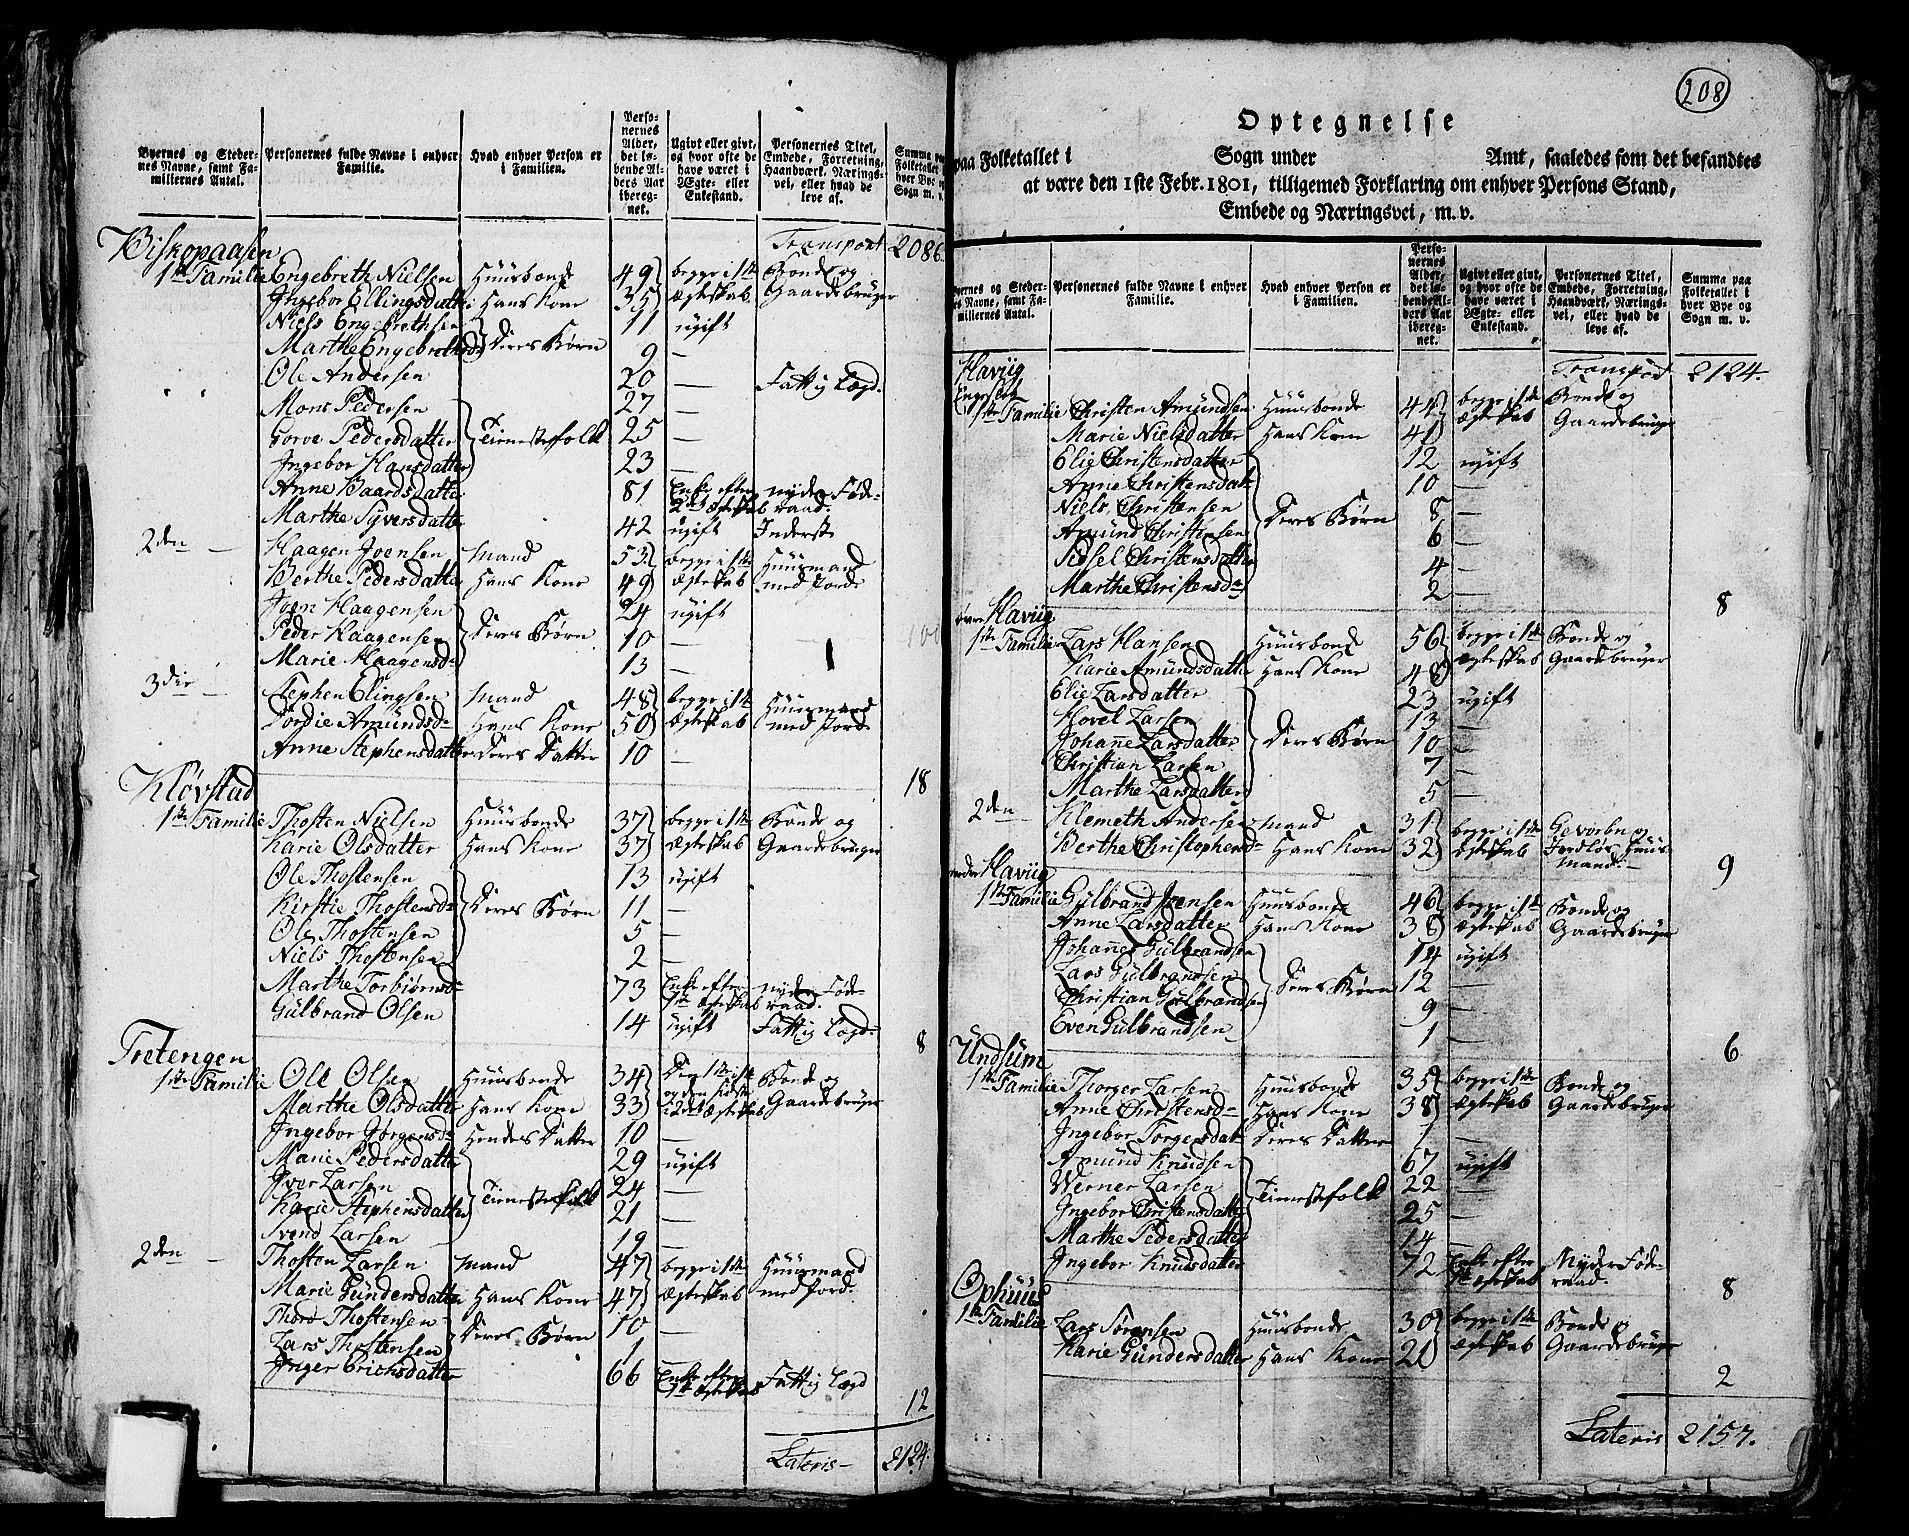 Byernes og Stedernes Navne, samt Familiernes Antal. | Personernes fulde Navne i enhver Familie. | Hvad enhver Person er i Familien. | Personernes Alder, det løbende Alders Aar iberegnet. | Ugivt eller givt, og hvor ofte de have været i Ægte- eller Enkestand. | Personernes Titel, Embede, Forretning, Haandværk, Næringsvei, eller hvad de leve af. | Summa paa Folketallet i hver Bye og Sogn m. v.
Transport 2086
Biskopaasen
1ste Familie Engebreth Nielsen Huusbonde 49 begge i 1ste Bonde og
Ingebor Ellingsdatter Hans Kone 35 Ægteskab Gaardebruger
Niels Engebrethsen 11 ugift
Marthe Engebrethsd Deres Børn 9 —
Ole Andersen 20 — Fattig Lægd.
Mons Pedersen 27 —
Gorve Pedersdatter Tienestefolk 25 —
Ingebor Hansdatter 23 —
Anne Baardsdatter 81 Enke efter nyder Føde-
2det Ægteskab raad.
Marthe Syversdatte 42 ugift Inderst
2den — Haagen Joensen Mand 53 begge i 1ste Huusmand
Berthe Pedersdatter Hans Kone 49 Ægteskab med Jorde
Joen Haagensen 24 ugift
Peder Haagensen Deres Børn 10 —
Marie Haagensd- 13 —
3die — Stephen Elingsen Mand 48 begge i 1ste Huusmand
Tordie Amundsd- Hans Kone 50 Ægteskab med Jorde
Anne Stephensdatter Deres Datter 10 —
18
Kløvstad
1ste Familie Thosten Nielsen Huusbonde 37 begge i 1ste Bonde og
Karie Olsdatter Hans Kone 37 Ægteskab Gaardebruger
Ole Thostensen 13 ugift
Kirstie Thostensd- Deres Børn 11 —
Ole Thostensen 5 —
Niels Thostensen 2 —
Marthe Torbiørnsd- 73 Enke efter nyder Føde-
1ste Ægteskab raad.
Gulbrand Olsen 14 ugift Fattig Lægd-
8
Tretengen
1ste Familie Ole Olsen Huusbonde 34 Den 1ste i 1ste Bonde og
Marthe Olsdatter Hans Kone 33 og den sidste Gaardebruger
i 2det Ægteskab
Ingebor Jørgensd- Hendes Datter 10 —
Marie Pedersdatte 29 ugift
Iver Larsen 24 —
Karie Stephensdatter Tienestefolk 21 —
Svend Larsen 19 —
2den — Thosten Larsen Mand 47 begge i 1ste Huusmand
Marie Gundersdatter Hans Kone 47 Ægteskab med Jord.
Thord Thostensen 10 —
Lars Thostensen Deres Børn 1 —
Inger Erichsdatter 66 Enke efter Fattig Lægd
1ste Ægteskab
12
Lateris — 2124.
208
Optegnelse
paa Folketallet i Sogn under Amt, saaledes som det befandtes
at være den 1ste Febr. 1801, tilligemed Forklaring om enhver Persons Stand,
Embede og Næringsvei, m. v.
Byernes og Stedernes Navne, samt Familiernes Antal. | Personernes fulde Navne i enhver Familie. | Hvad enhver Person er i Familien. | Personernes Alder, det løbende Alders Aar iberegnet. | Ugivt eller givt, og hvor ofte de have været i Ægte- eller Enkestand. | Personernes Titel, Embede, Forretning, Haandværk, Næringsvei, eller hvad de leve af. | Summa paa Folketallet i hver Bye og Sogn m. v.
Transport 2124.
Haviig
1ste Familie Christen Amundsen Huusbonde 44 begge i 1ste Bonde og
Marie Nielsdatter Hans Kone 41 Ægteskab Gaardebruger
Elie Christensdatter 12 ugift
Anne Christensdat 10 —
Niels Christensen 8 —
Amund Christensen Deres Børn 6 —
Sidsel Christensdatter 4 —
Marthe Christensd- 2 —
8
øvre Haviig
1ste Familie Lars Hansen Huusbond 56 begge i 1ste Bonde og
Karie Amundsdatte Hans Kone 48 Ægteskab Gaardebruger
Elie Larsdatter 23 ugift
Hovel Larsen 13 —
Johanne Larsdatter Deres Børn 10 —
Christian Larsen 7 —
Marthe Larsdatter 5 —
2den Klemeth Andersen Mand 31 begge i 1ste Gevorben og
Berthe Christophersd- Hans Kone 32 Ægteskab Jordløs Huus-
mand
9
neder Haviig
1ste Familie Gulbrand Joensen Huusbonde 46 begge i 1ste Bonde og
Anne Larsdatter Hans Kone 36 Ægteskab Gaardebruger
Johannes Gulbrandsen 14 ugift
Lars Gulbrandsen 12 —
Christian Gulbrandsen Deres Børn 9 —
Even Gulbrandsen 1 —
6
Undsum
1ste Familie Thorger Larsen Huusbonde 35 begge i 1ste Bonde og
Anne Christensd- Hans Kone 38 Ægteskab Gaardebruger
Ingebor Torgersdat Deres Datter 1 —
Amund Knudsen 67 ugift
Werner Larsen 22 —
Ingebor Christensdatte Tienestefolk 25 —
Marthe Pedersdatter 14 —
Ingebor Knudsdatter 72 Enke efter Nyder Føde-
1ste Ægteskab raad.
8
Ophuus
1ste Familie Lars Sørensen Huusbonde 30 begge i 1ste Bonde og
Karie Gundersdatter Hans Kone 21 Ægteskab Gaardebruger
2
Lateris 2157.